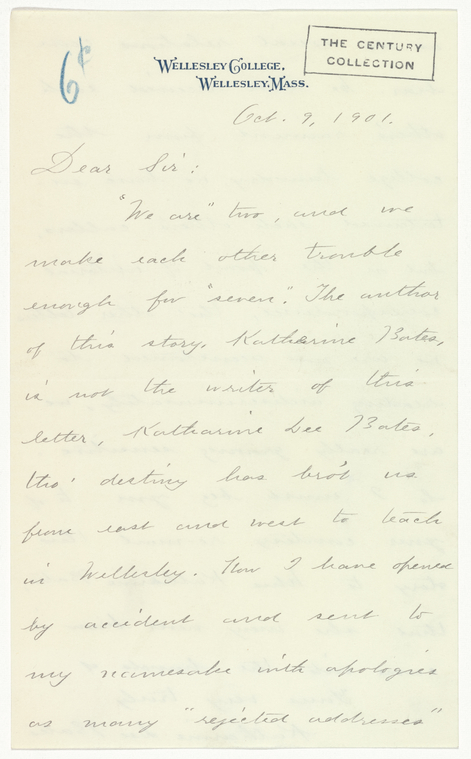 6¢
THE CENTURY
COLLECTION
WELLESLEY COLLEGE,
WELLESLEY, MASS.
Oct. 9, 1901.
Dear Sir:
"We are" two, and we
make each other trouble
enough for "seven". The author
of this story, Katharine Bates,
is not the writer of this
letter, Katharine Lee Bates,
tho' destiny has bro't us
from east and west to teach
in Wellesley. Now I have opened
by accident and sent to
my namesake with apologies
as many "rejected addresses"